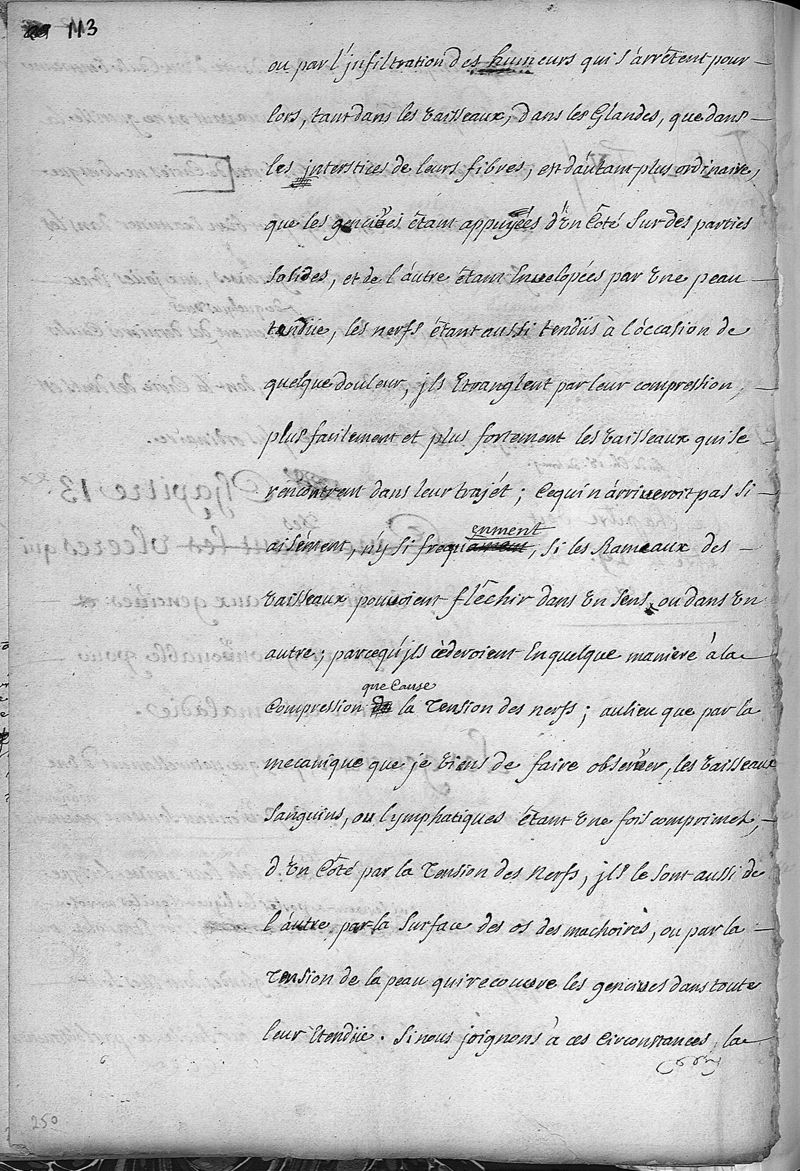 113
ou par l'jnfiltration des humeurs qui s'arrêtent pour
lors, tant dans les vaisseaux, dans les Glandes, que dans
les jnterstices de leurs fibres, est d'aûtant plus ordinaire,
que les gencives êtant appuyées d'Ûn Côté Sur des parties
Solides, et de l'aûtre êtant Envelopées par Vne peau
tendüe, les nerfs êtant aussi tendûs à l'occasion de
quelque douleur, jls Etranglent par leur compression,
plus facilement et plus fortement les vaisseaux qui se
rencontrent dans leur trajét ; Ce qui n'arriveroit pas Si
enment
aisément, ny Si frequament, Si les Rameaux des
vaisseaux pouvoient flêchir dans Vn Sens, ou dans Vn
autre ; parcequ'jls cèderoient En quelque maniere à la
que Cause
Compression de la Tension des nerfs ; au lieu que par la
mecanique que je viens de faire observer, les vaisseaux
Sanguins, ou lymphatiques êtant Vne fois comprimez,
d'Ûn Côté par la Tension des Nerfs, jls le Sont aussi de
l'aûtre, par la Surface des os des machoires, ou par la
Tension de la peau qui recouvre les gencives dans toute
leur Etendüe. Si nous joignons à ces Circonstances, la
250